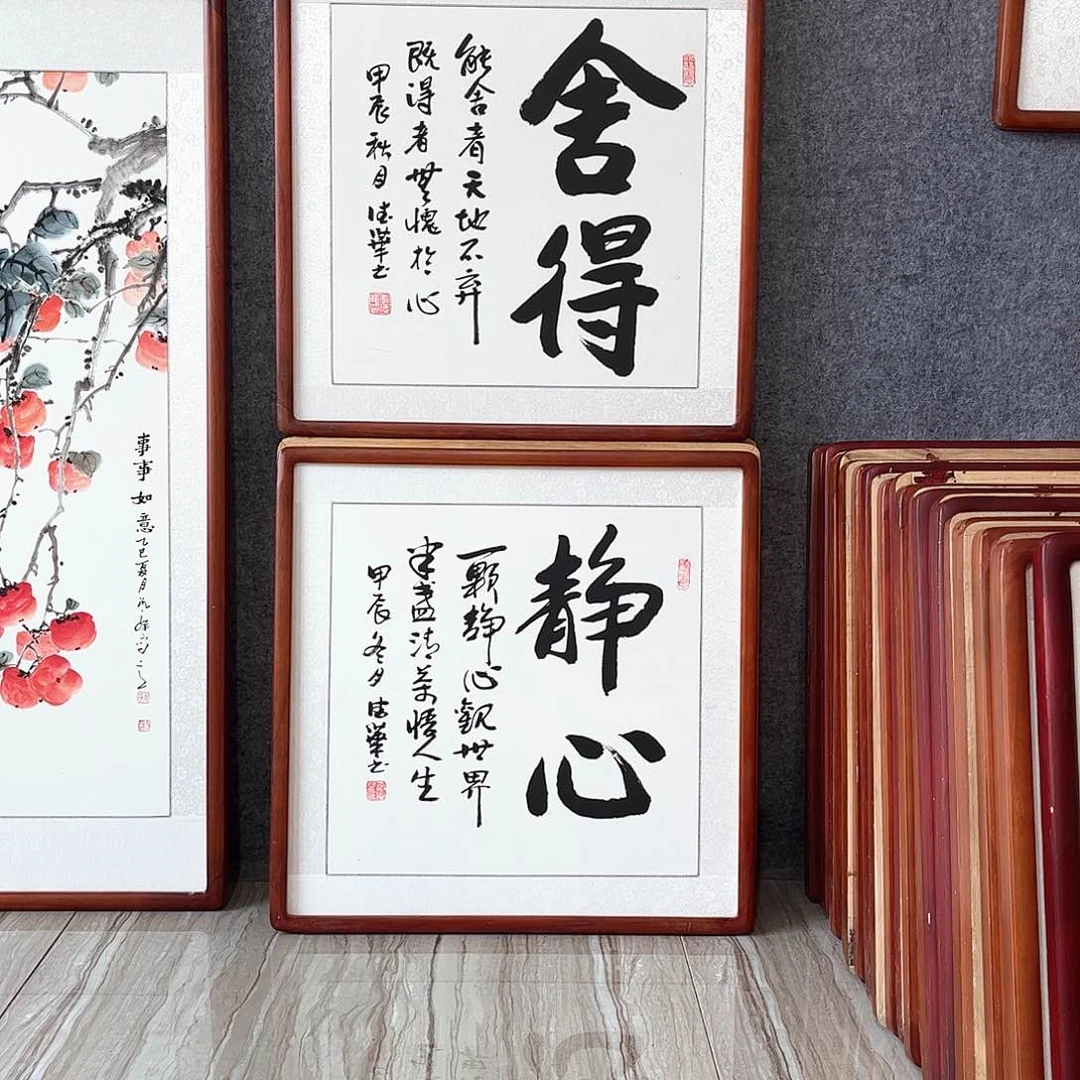 舍得
能舍者天地不弃
既得者無愧於心
甲辰秋月
静心
一顆静心觀世界
半盏清茶悟人生
甲辰冬月
事事如意乙巳夏月